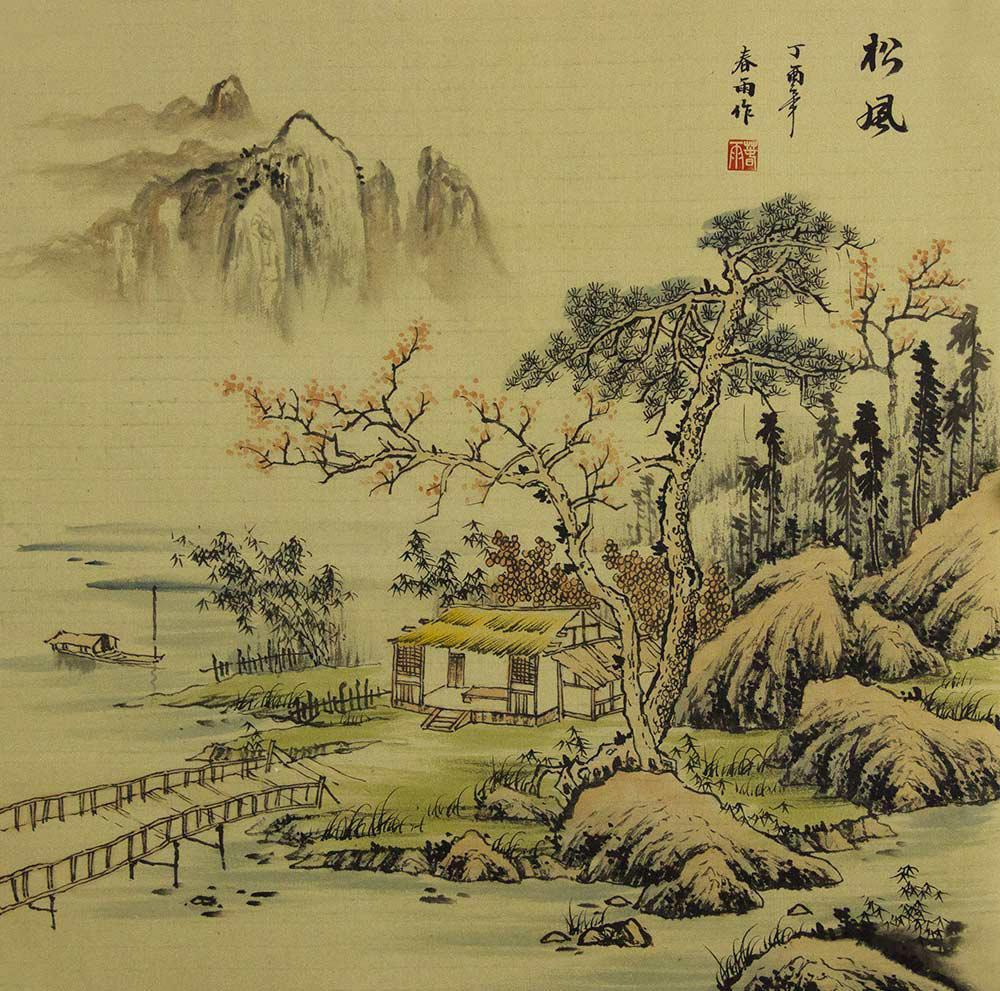 松風
丁酉年
春雨作
春雨